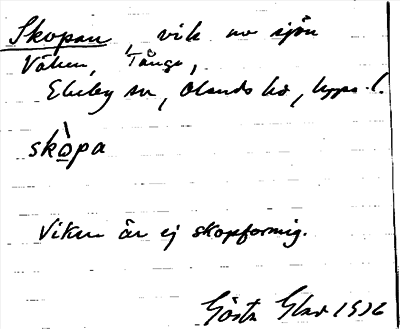 Skopan vik av sjön
Vällen, Tånga,
Ekeby sn, Olands hd, Upps. l.
skò̲pa
Viken är ej skopformig.
Gösta Glad 1936